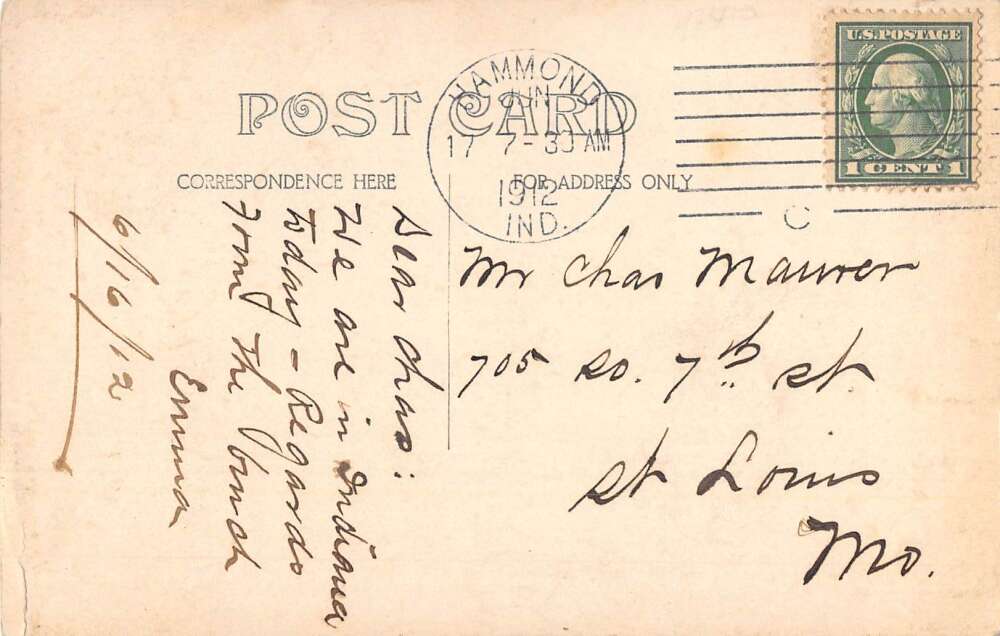 POST CARD
CORRESPONDENCE HERE
FOR ADDRESS ONLY
HAMMOND
JUN
17 7-30 AM
1912
IND.
C
U.S. POSTAGE
1 CENT 1
Dear Chas:
We are in Indiana
today - Regards
from the bunch
Emma
6/16/12
Mr Chas Maurer
705 So. 7th St
St Louis
Mo.